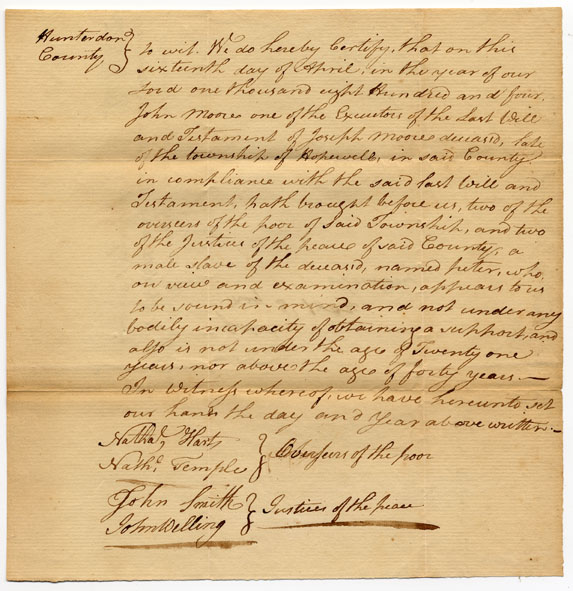 Hunterdon
County } to wit. We do hereby Certify, that on this
sixteenth day of April, in the year of our
Lord one thousand eight Hundred and four,
John Moore one of the Executors of the Last Will
and Testament of Joseph Moore deceased, late
of the township of Hopewell, in said County
in compliance with the said last Will and
Testament, hath brought before us, two of the
overseers of the poor of Said Township, and two
of the Justices of the peace of said County, a
male slave of the deceased, named peter, who,
on view and examination, appears to us
to be sound in mind, and not under any
bodily incapacity of obtaining a support, and
also is not under the age of Twenty one
years, nor above the age of forty years.—
In Witness whereof, we have hereunto set
our hands the day and Year above written:—
Nathal, Hart
Nathl. Temple } Overseers of the poor
John Smith
John Welling } Justices of the peace